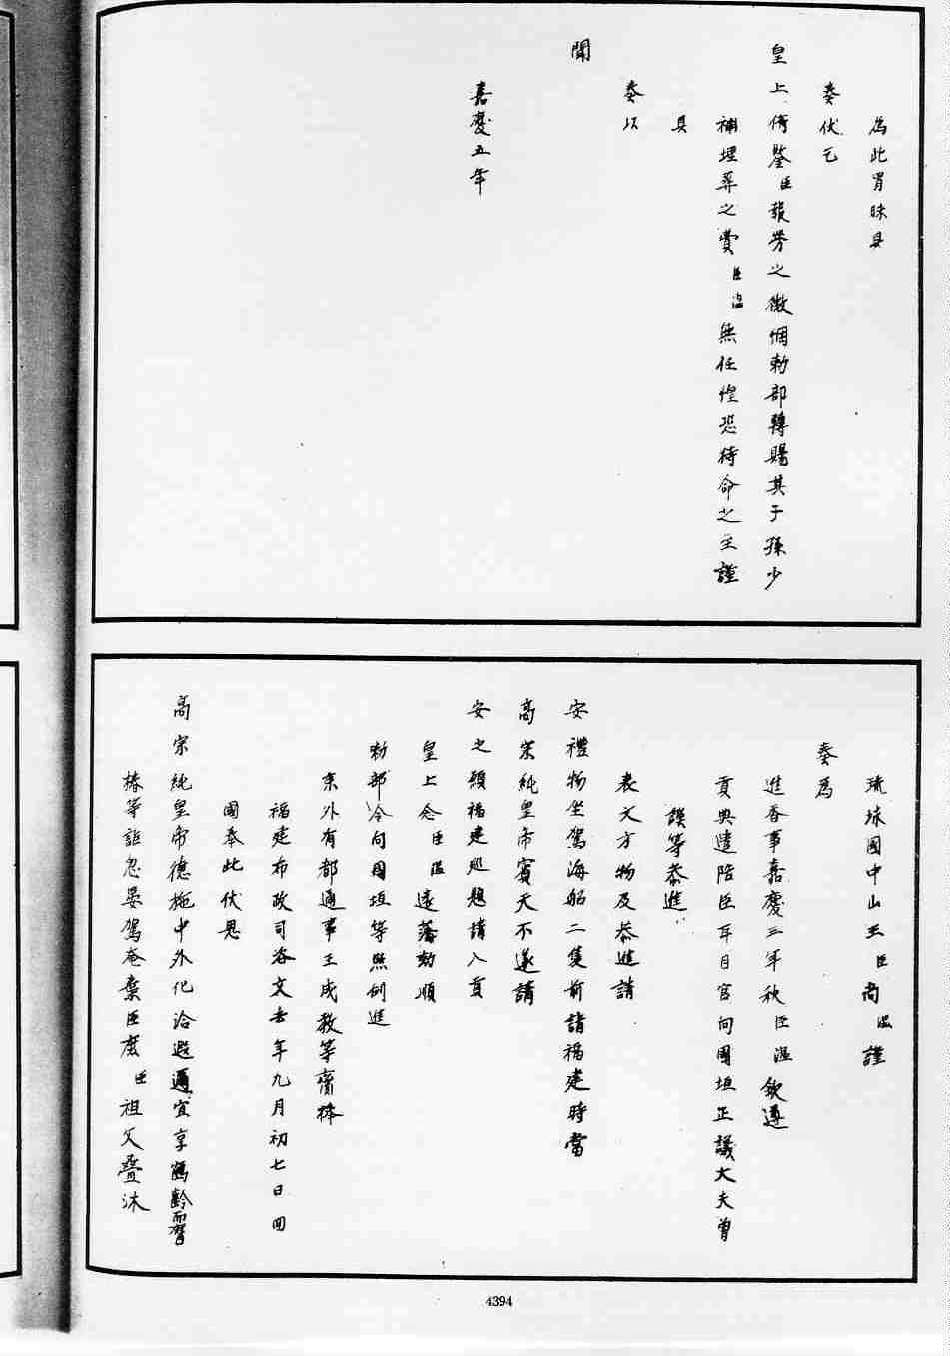 為此冒昧具
奏伏乞
皇上俯鑒臣報勞之微悃勅部轉賜其子孫少
補埋葬之賞臣溫無任惶恐待命之至謹
具
奏以
聞
嘉慶五年
琉球國中山王臣尚溫謹
奏為
進香事嘉慶三年秋臣溫欽遵
貢典遣陪臣耳目官向國垣正議大夫曾
謨等恭進
表文方物及恭進請
安禮物坐駕海船二隻前詣福建時當
高宗純皇帝賓天不遂請
安之願福建巡題請入貢
皇上念臣溫遠藩効順
勅部令向國垣等照例進
京外有都通事王成教等齎捧
福建布政司咨文去年九月初七日回
國奉此伏思
高宗純皇帝德施中外化洽遐邇宜享鶴齡
椿等詎忽晏駕奄棄臣庶臣祖父疊沐
4394